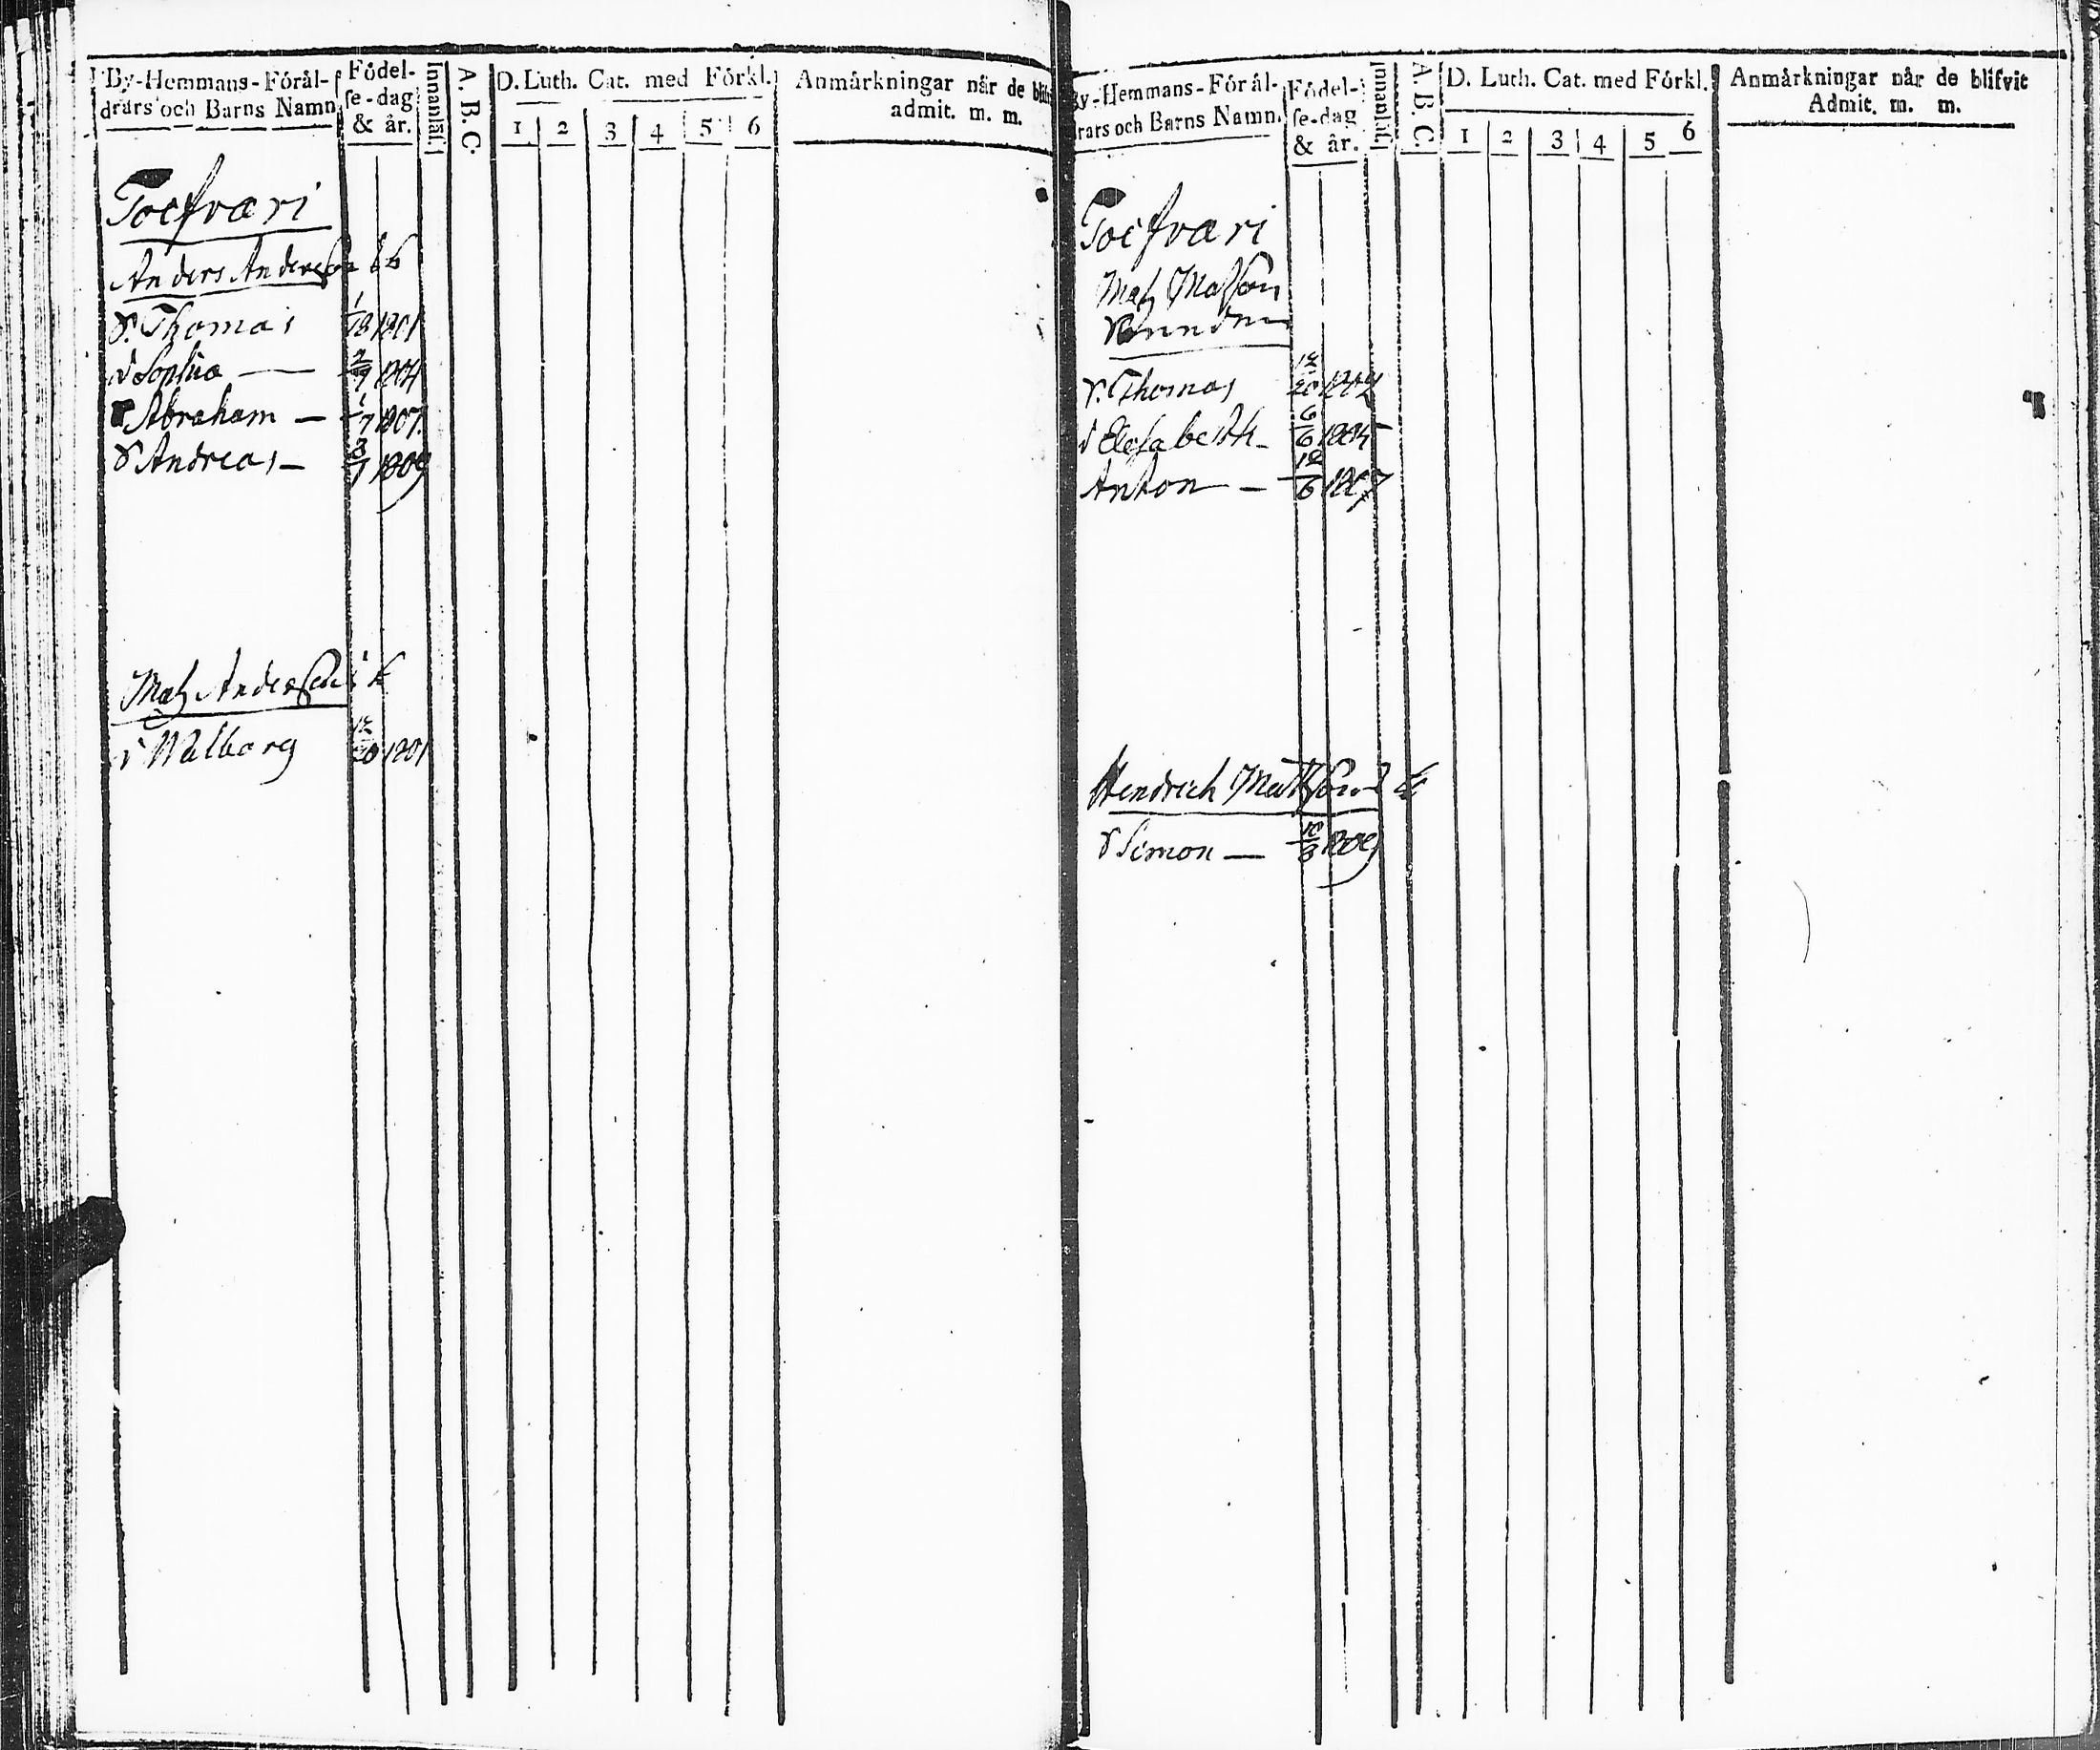 By-Hemmans-Föräl-
drars och Barns Namn
Födel-
se-dag
& år.
Innanläs.
A. B. C.
D. Luth. Cat. med Förkl.
1 2 3 4 5 6
Anmårkningar når de blifvit
admit. m. m.
Tocfvari
Anders Anderson
S. Thomas 1/18 1801
d Sophia — 2/9 1804
Abraham — 1/7 1807.
S Andreas — 3/7 1809
Mats Anderson
d Walborg 12/20 1801
By-Hemmans-Föräl-
drars och Barns Namn.
Födel-
se-dag
& år.
Innanläs.
A. B. C.
D. Luth. Cat. med Förkl.
1 2 3 4 5 6
Anmårkningar når de blifvit
Admit. m. m.
Tocfvari
Mats Matson
S. Thomas 12/20 1802
d Elisabeth — 6/6 1805
Anton — 12/6 1807
Hendrich Mattson
S Simon — 10/8 1809